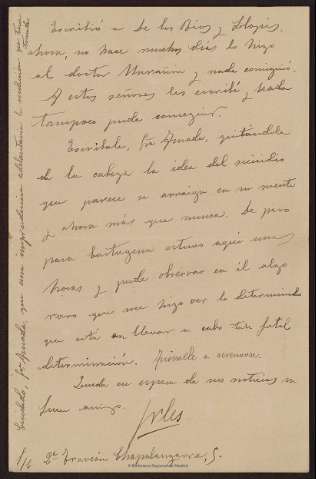 Escribió a De los Ríos y
ahora, no hace muchos días lo hizo
al doctor Marañón y nada consiguió.
A estos señores les escribí y
tampoco pude conseguir.
Escríbale, Fray Amado, quitándole
de la cabeza la idea del suicidio
que parece se arraiga en su mente
y ahora más que nunca. De paso
para Cartagena estuvo aquí unas
horas y pude observar en él algo
raro que me hizo ver lo determinado
que está en llevar a cabo tan fatal
determinación.
Queda en espera de sus noticias su
amigo.
S/C 2ª Travesía Chapalangarra, 5.
Cuidado, Fray Amado, que una imprudencia